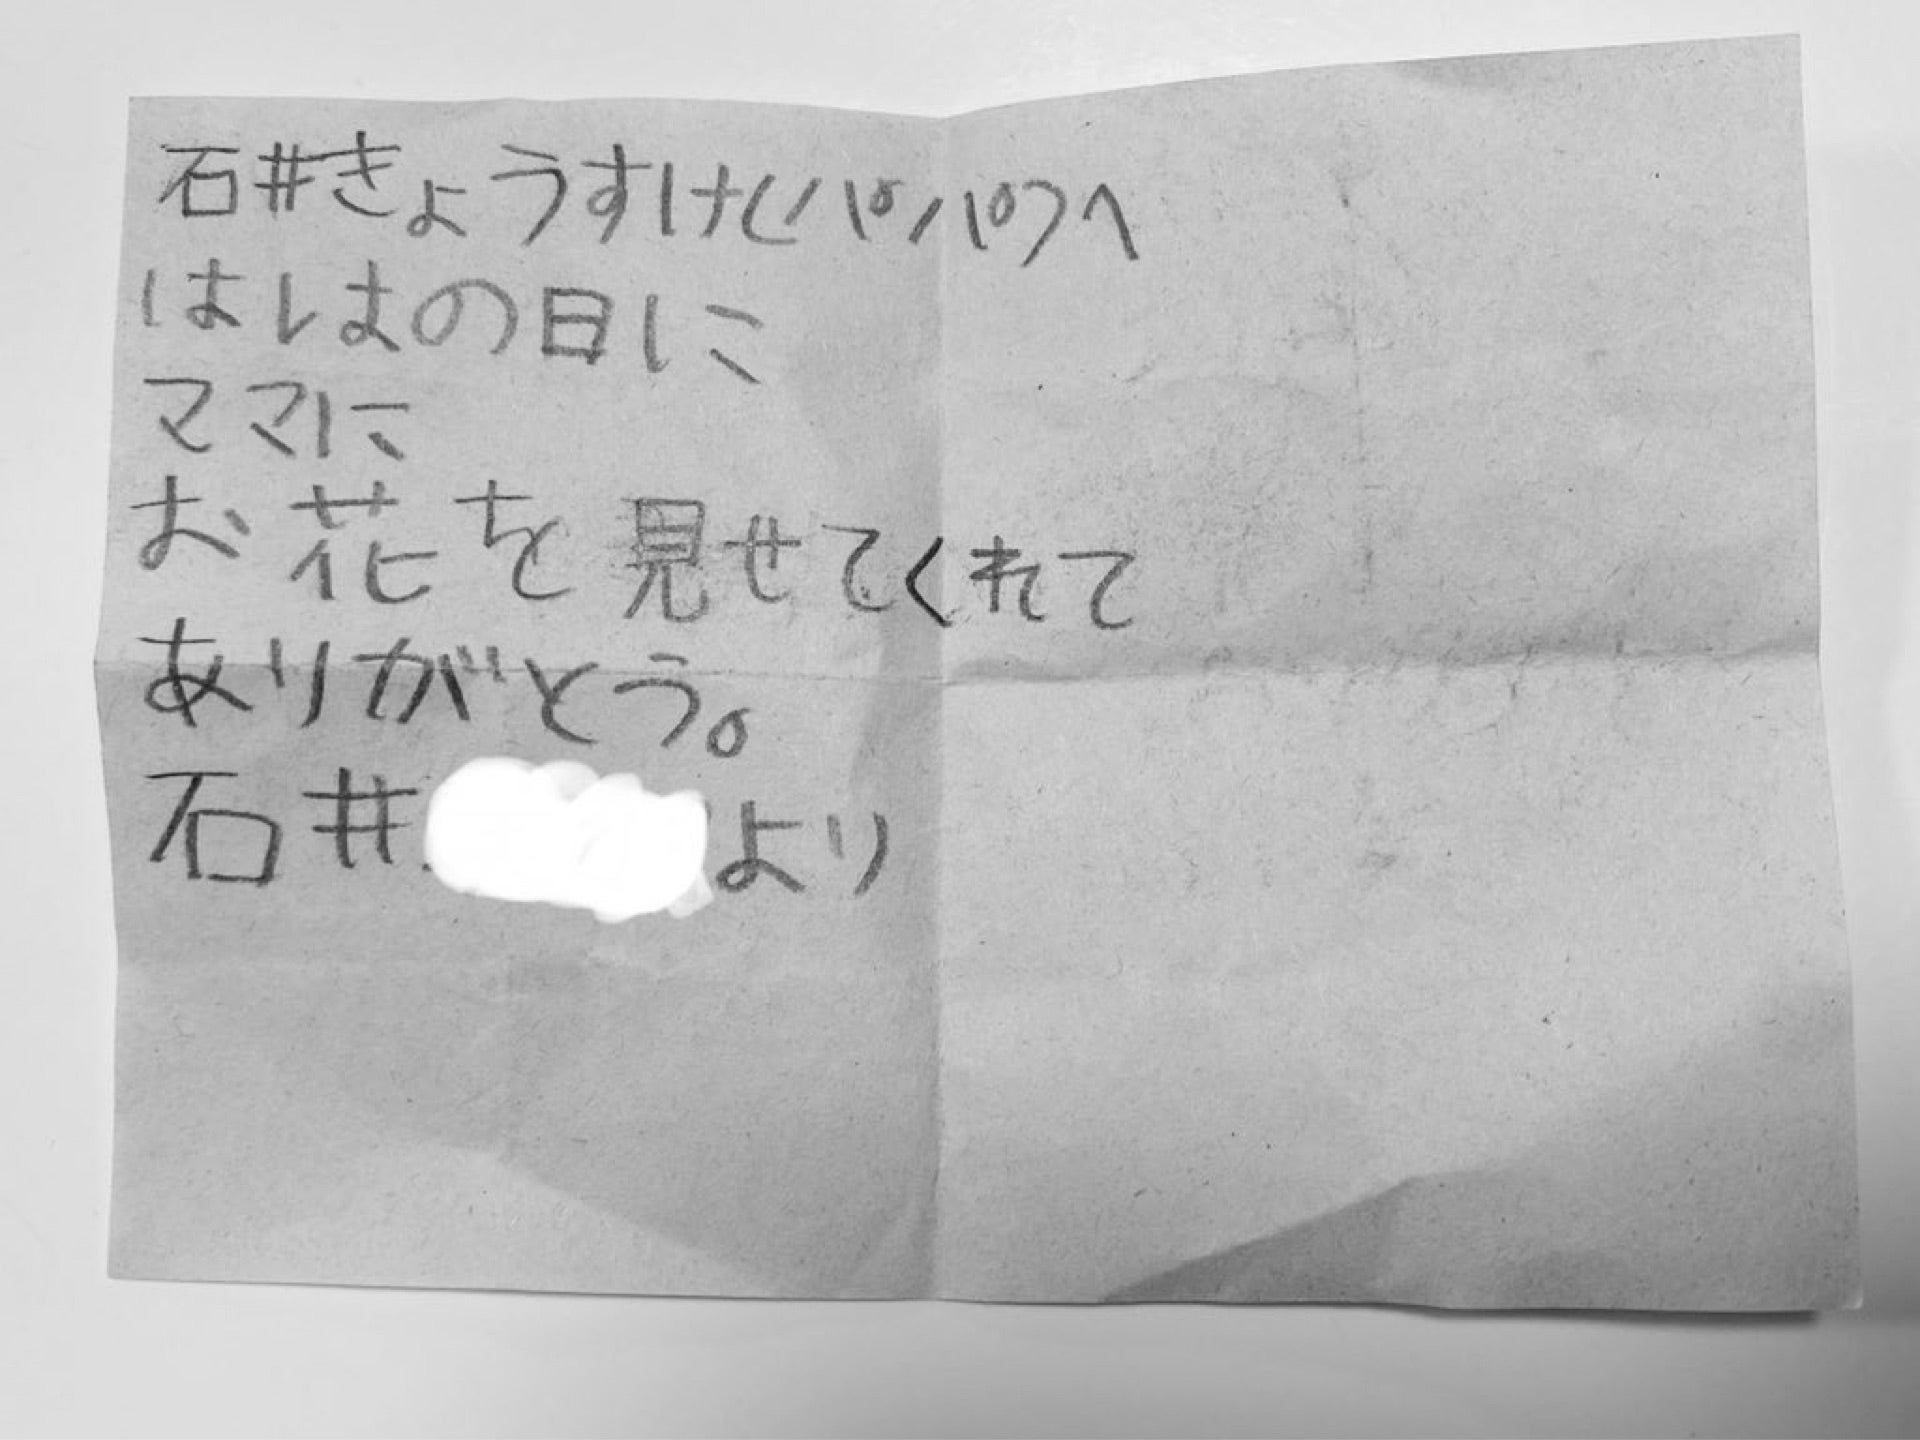 石井きょうすけ(パパ)へ
ははの日に
ママに
お花を見せてくれて
ありがとう。
石井 より